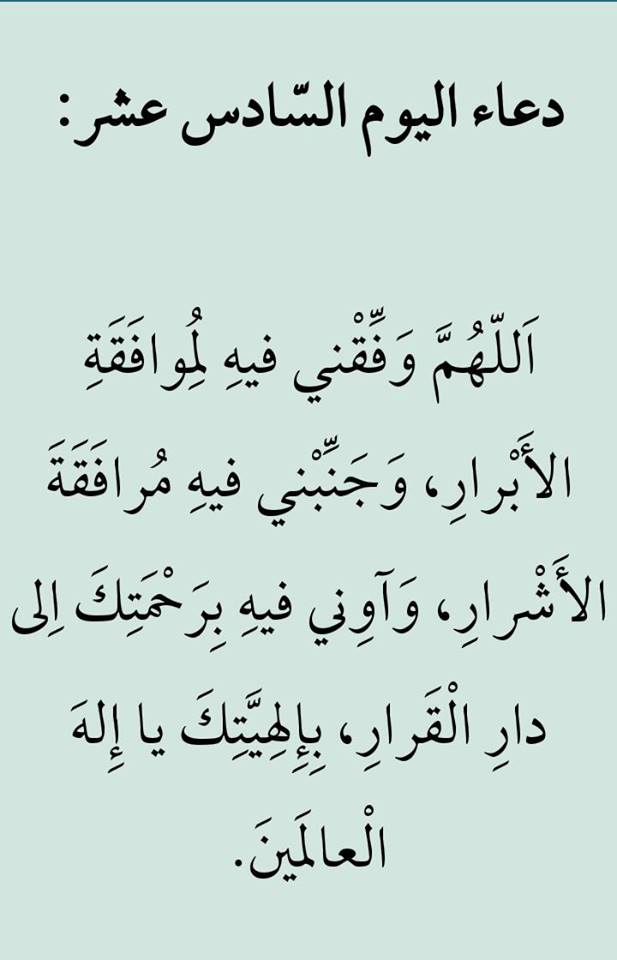 دعاء اليوم السّادس عشر:
اَللّهُمَّ وَفِّقْني فيهِ لِمُوافَقَةِ
الأَبْرارِ، وَجَنِّبْني فيهِ مُرافَقَةَ
الأَشْرارِ، وَآوِني فيهِ بِرَحْمَتِكَ اِلى
دارِ الْقَرارِ، بِإِلهِيَّتِكَ يا إِلهَ
الْعالَمَينَ.